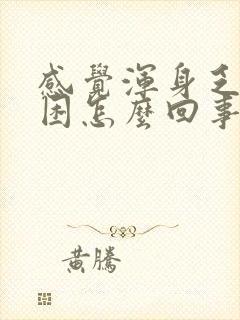 感覺渾身乏
困怎麼回事
黃騰